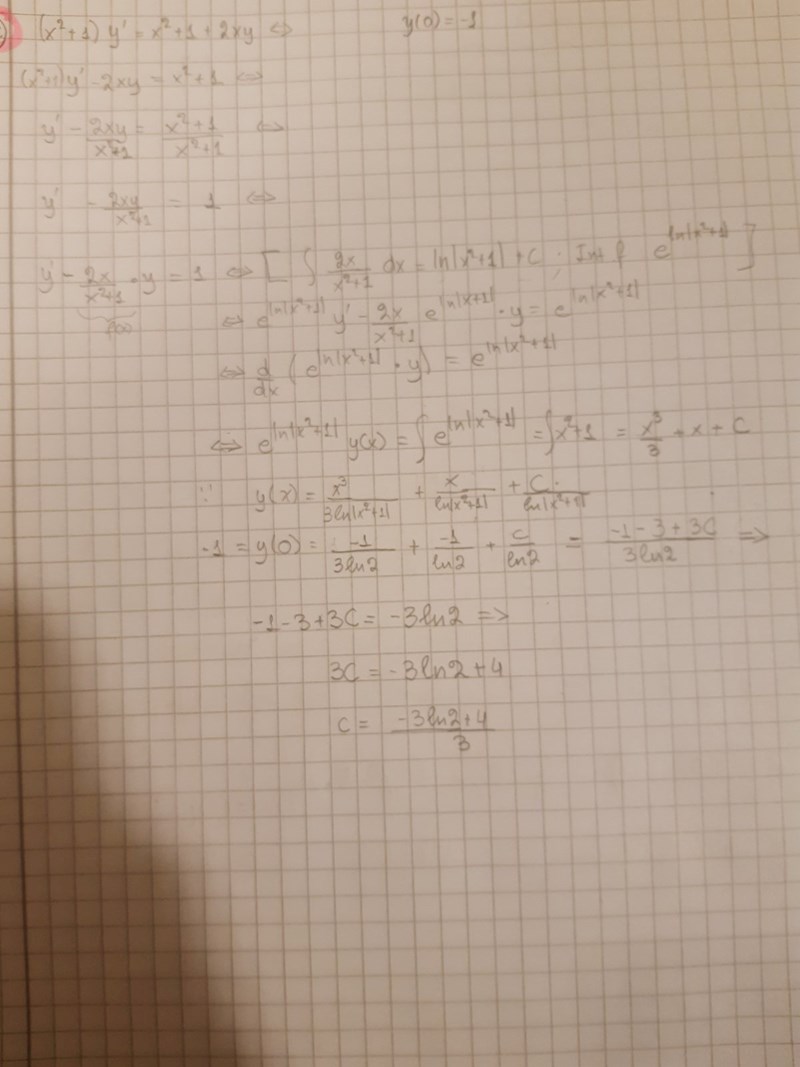 (x²+1) y' = x²+1+2xy ⇔ y(0) = -1
(x²+1)y' - 2xy = x²+1 ⇔
y' - 2xy/x²+1 = x²+1/x²+1 ⇔
y' - 2xy/x²+1 = 1 ⇔
y' - 2x/x²+1 · y = 1 ⇔ [ ∫ 2x/x²+1 dx = ln|x²+1| + C ; Int f e^ln|x²+1| ]
⇔ e^ln|x²+1| y' - 2x/x²+1 e^ln|x+1| · y = e^ln|x²+1|
⇔ d/dx (e^ln|x²+1| · y) = e^ln|x²+1|
⇔ e^ln|x²+1| y(x) = ∫ e^ln|x²+1| = ∫x²+1 = x³/3 + x + C
∵ y(x) = x³/3ln|x²+1| + x/ln|x²+1| + C/ln|x²+1|
-1 = y(0) = -1/3ln2 + -1/ln2 + C/ln2 = -1-3+3C/3ln2 =>
-1-3+3C = -3ln2 =>
3C = -3ln2+4
C = -3ln2+4/3